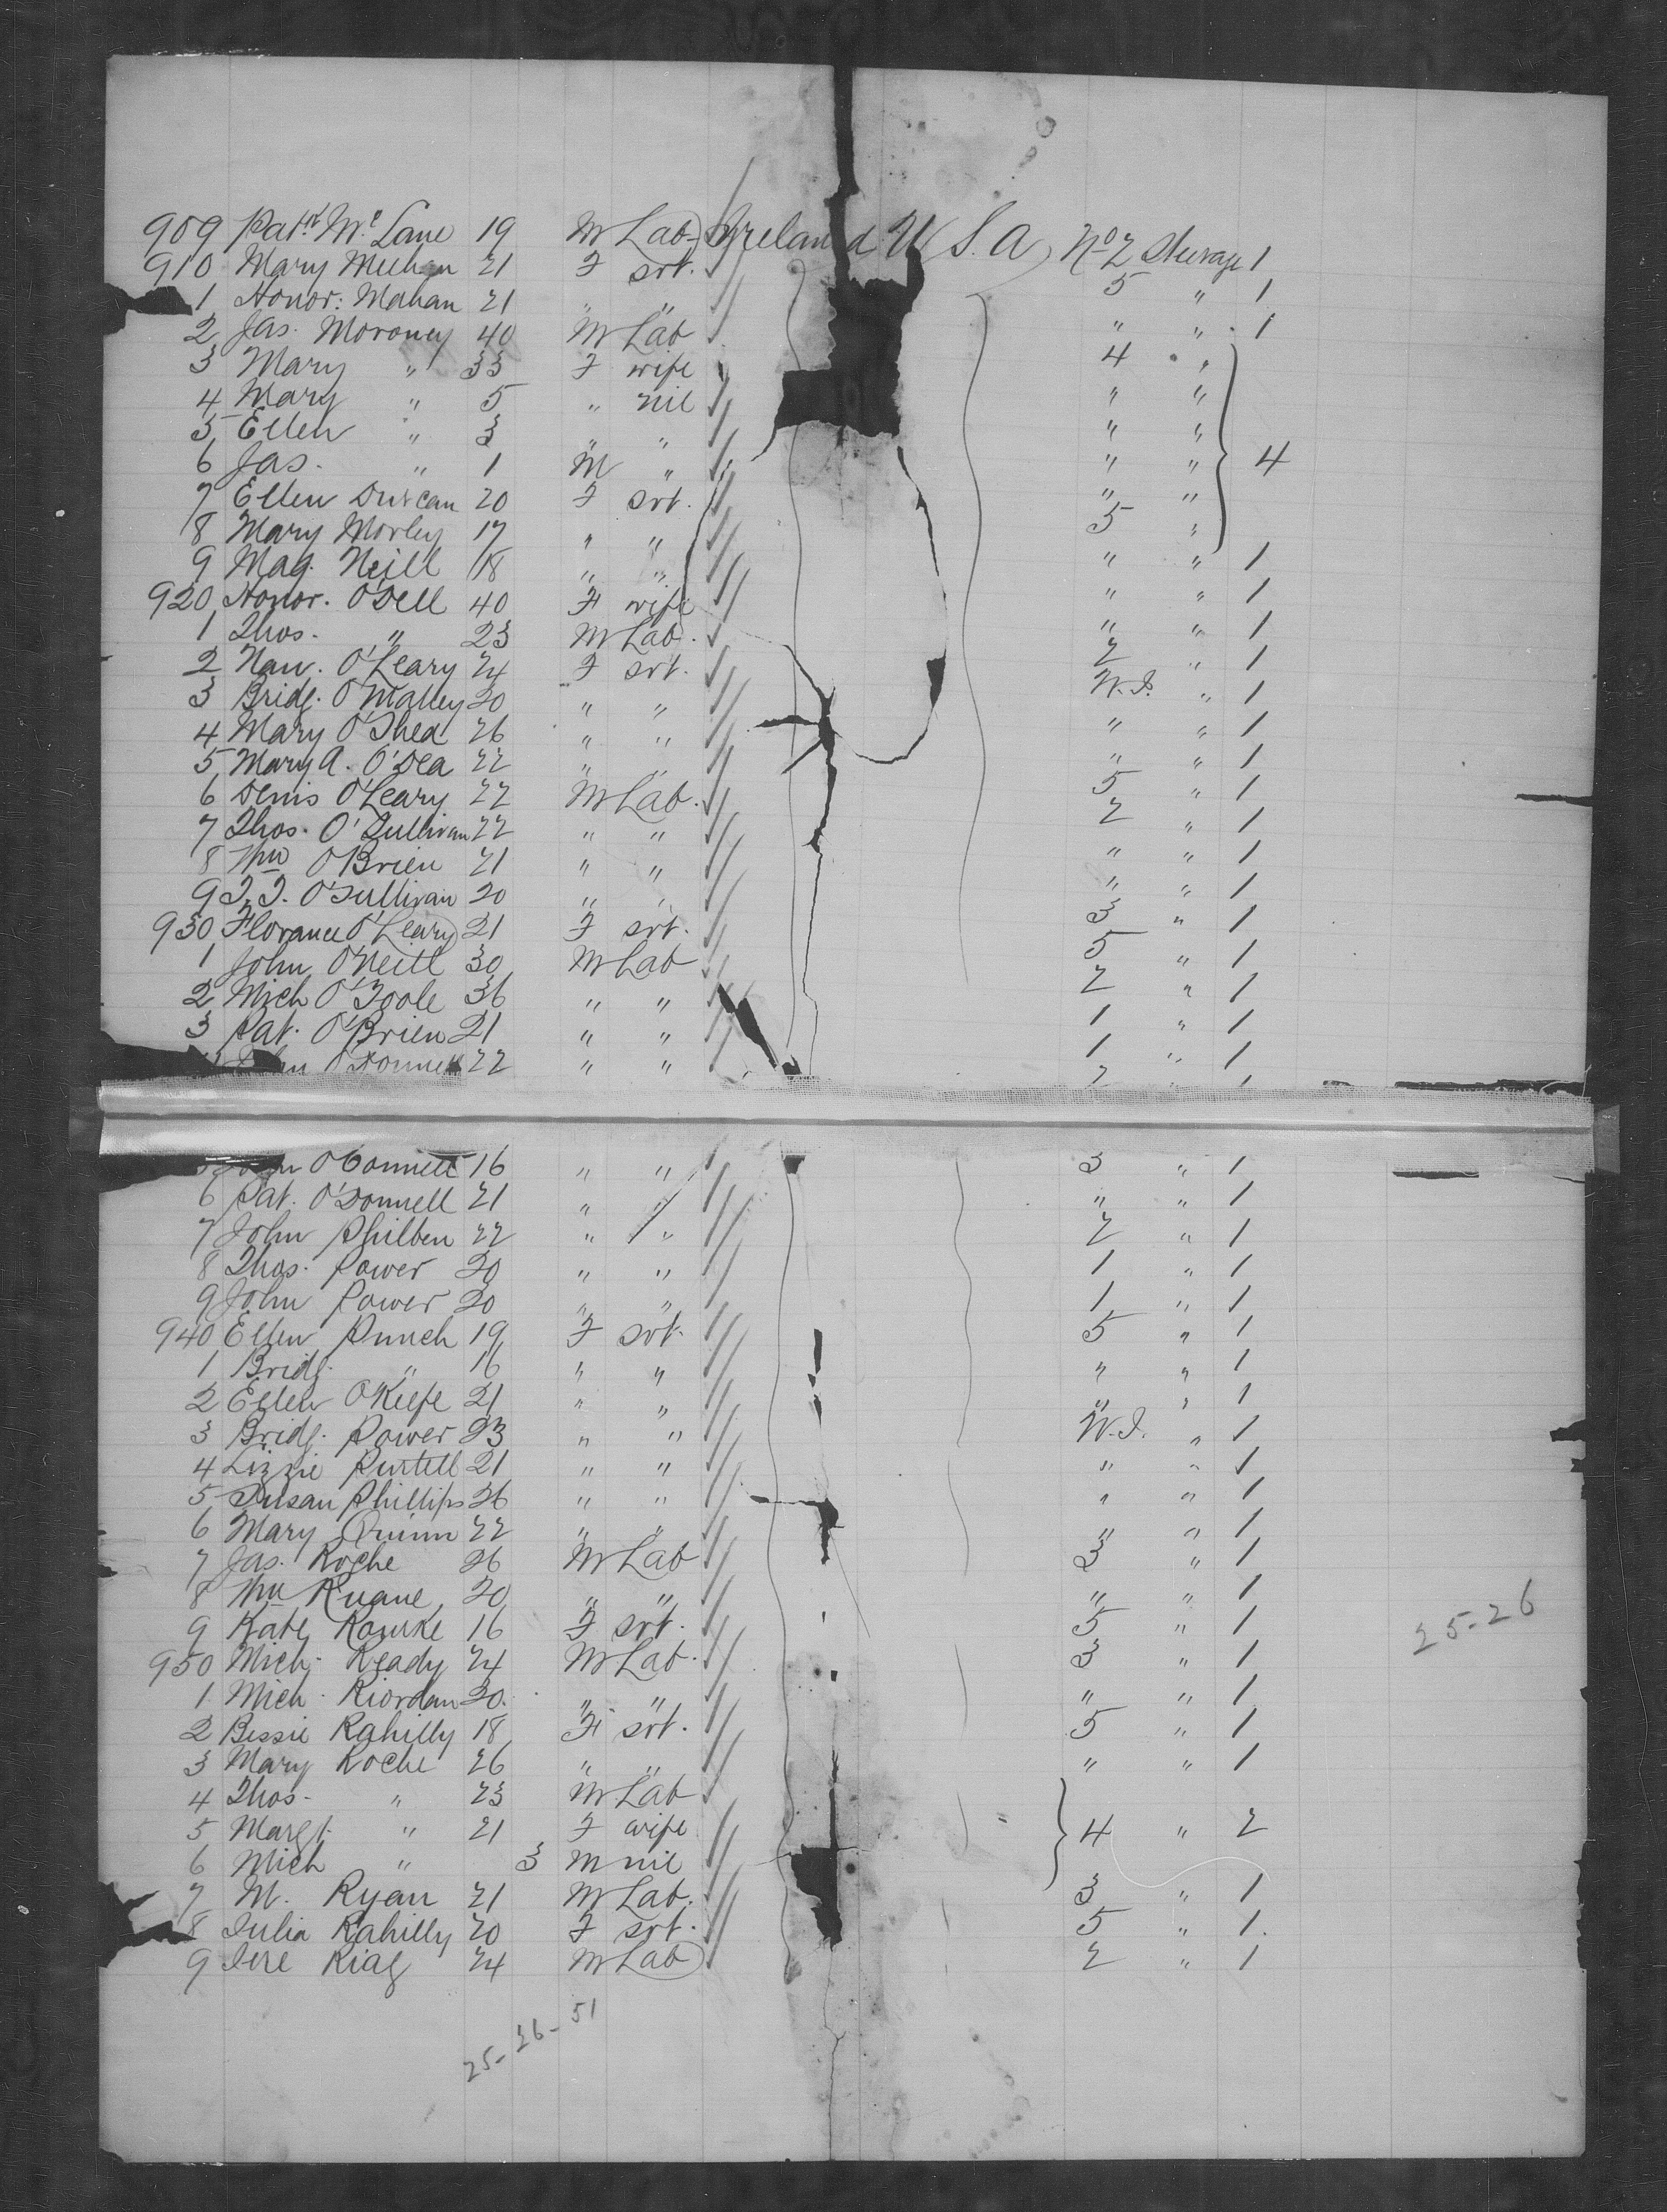 909 Patk Mc Lane 19 M Lab Ireland U.S.A No 2 Steerage 1
910 Mary Meehan 21 F srt. 5 " 1
1 Honor: Mahan 21 " " " " 1
2 Jas. Moroney 40 M Lab 4 "
3 Mary " 33 F wife " "
4 Mary " 5 " nil " "
5 Ellen " 3 " " " " 4
6 Jas. " 1 M " " "
7 Ellen Duncan 20 F srt. 5 "
8 Mary Morley 17 " " " " 1
9 Mag. Neill 18 " " " " 1
920 Honor. O'Dell 40 F wife " " 1
1 Thos. " 23 M Lab. 2 " 1
2 Nan. O'Leary 24 F srt. W.I. " 1
3 Bridg. O'Malley 20 " " " " 1
4 Mary O'Shea 26 " " " " 1
5 Mary A. O'Dea 22 " " 5 " 1
6 Denis O'Leary 22 M Lab. 2 " 1
7 Thos. O'Sullivan 22 " " " " 1
8 Wm O'Brien 21 " " " " 1
9 T. J. O'Sullivan 20 " " 3 " 1
930 Florance O'Leary 21 F srt. 5 " 1
1 John O'Neill 30 M Lab 2 " 1
2 Mich O'Toole 36 " " 1 " 1
3 Pat. O'Brien 21 " " 1 " 1
O'Donnell 22 " "
John O'Connell 16 " " 3 " 1
6 Pat. O'Donnell 21 " " " " 1
7 John Philben 22 " " 2 " 1
8 Thos. Power 20 " " 1 " 1
9 John Power 20 " " 1 " 1
940 Ellen Punch 19 F srt. 5 " 1
1 Bridg. " 16 " " " " 1
2 Ellen O'Keefe 21 " " " " 1
3 Bridg. Power 23 " " W.I. " 1
4 Lizzie Purtell 21 " " " " 1
5 Susan Phillips 26 " " " " 1
6 Mary Quinn 22 " " " " 1
7 Jas. Roche 26 M Lab 3 " 1
8 Wm Ruane 20 " " " " 1
9 Kate Rourke 16 F srt. 5 " 1
25-26
950 Mich. Ready 24 M Lab. 3 " 1
1 Mich. Riordan 20. " " " " 1
2 Bessie Rahilly 18 F srt. 5 " 1
3 Mary Roche 26 " " " " 1
4 Thos. " 23 M Lab
5 Margt. " 21 F wife 4 " 2
6 Mich " 3 M nil
7 M. Ryan 21 M Lab. 3 " 1
8 Julia Rahilly 20 F srt. 5 " 1.
9 Jere 24 M Lab 2 " 1
25-26-51